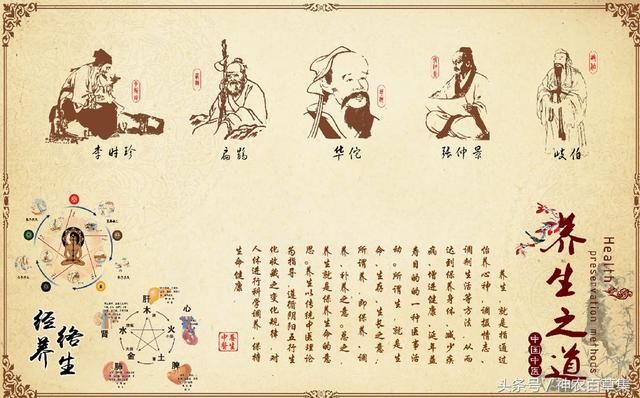 李时珍
扁鹊
华佗
张仲景
岐伯
养生之道
Health
preservation methods
中国中医
养生，就是指通过
怡养心神、调摄情志、
调制生活等方法，从而
达到保养身体、减少疾
病、增进健康、延年益
寿目的的一种医事活
动。所谓生，就是生
命、生存、生长之意；
所谓养，即保养、调
养、补养之意。总之，
养生就是保养生命的意
思。养生以传统中医理论
为指导，遵循阴阳五行生
化收藏之变化规律，对
人体进行科学调养，保持
生命健康
养生
中医
经络
养生
肝
木
心
火
脾
土
肺
金
肾
水
头条号／神农百草集